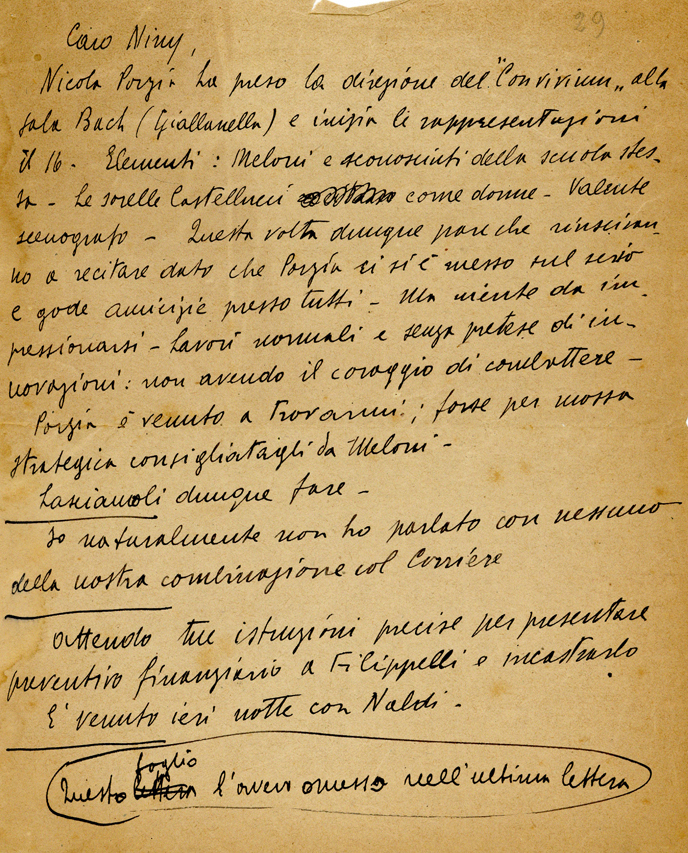 29
Caro Niny,
Nicola Porzia ha preso la direzione del "Convivium" alla
sala Bach (Giallanella) e inizia le rappresentazioni
il 16 - Elementi : Meloni e sconosciuti della scuola stes-
sa - Le sorelle Castellucci come donne - Valente
scenografo - Questa volta dunque pare che riusciran-
no a recitare dato che Porzia ci si è messo sul serio
e gode amicizie presso tutti - Ma niente da im-
pressionarsi - Lavori normali e senza pretese di in-
novazioni : non avendo il coraggio di combattere -
Porzia è venuto a trovarmi ; forse per mossa
strategica consigliatagli da Meloni -
Lasciamoli dunque fare -
Io naturalmente non ho parlato con nessuno
della nostra combinazione col Corriere
Attendo tue istruzioni precise per presentare
preventivo finanziario a Filippelli e incastrarlo
E' venuto ieri notte con Naldi -
foglio
Questo lettera l'avevo omesso nell'ultima lettera